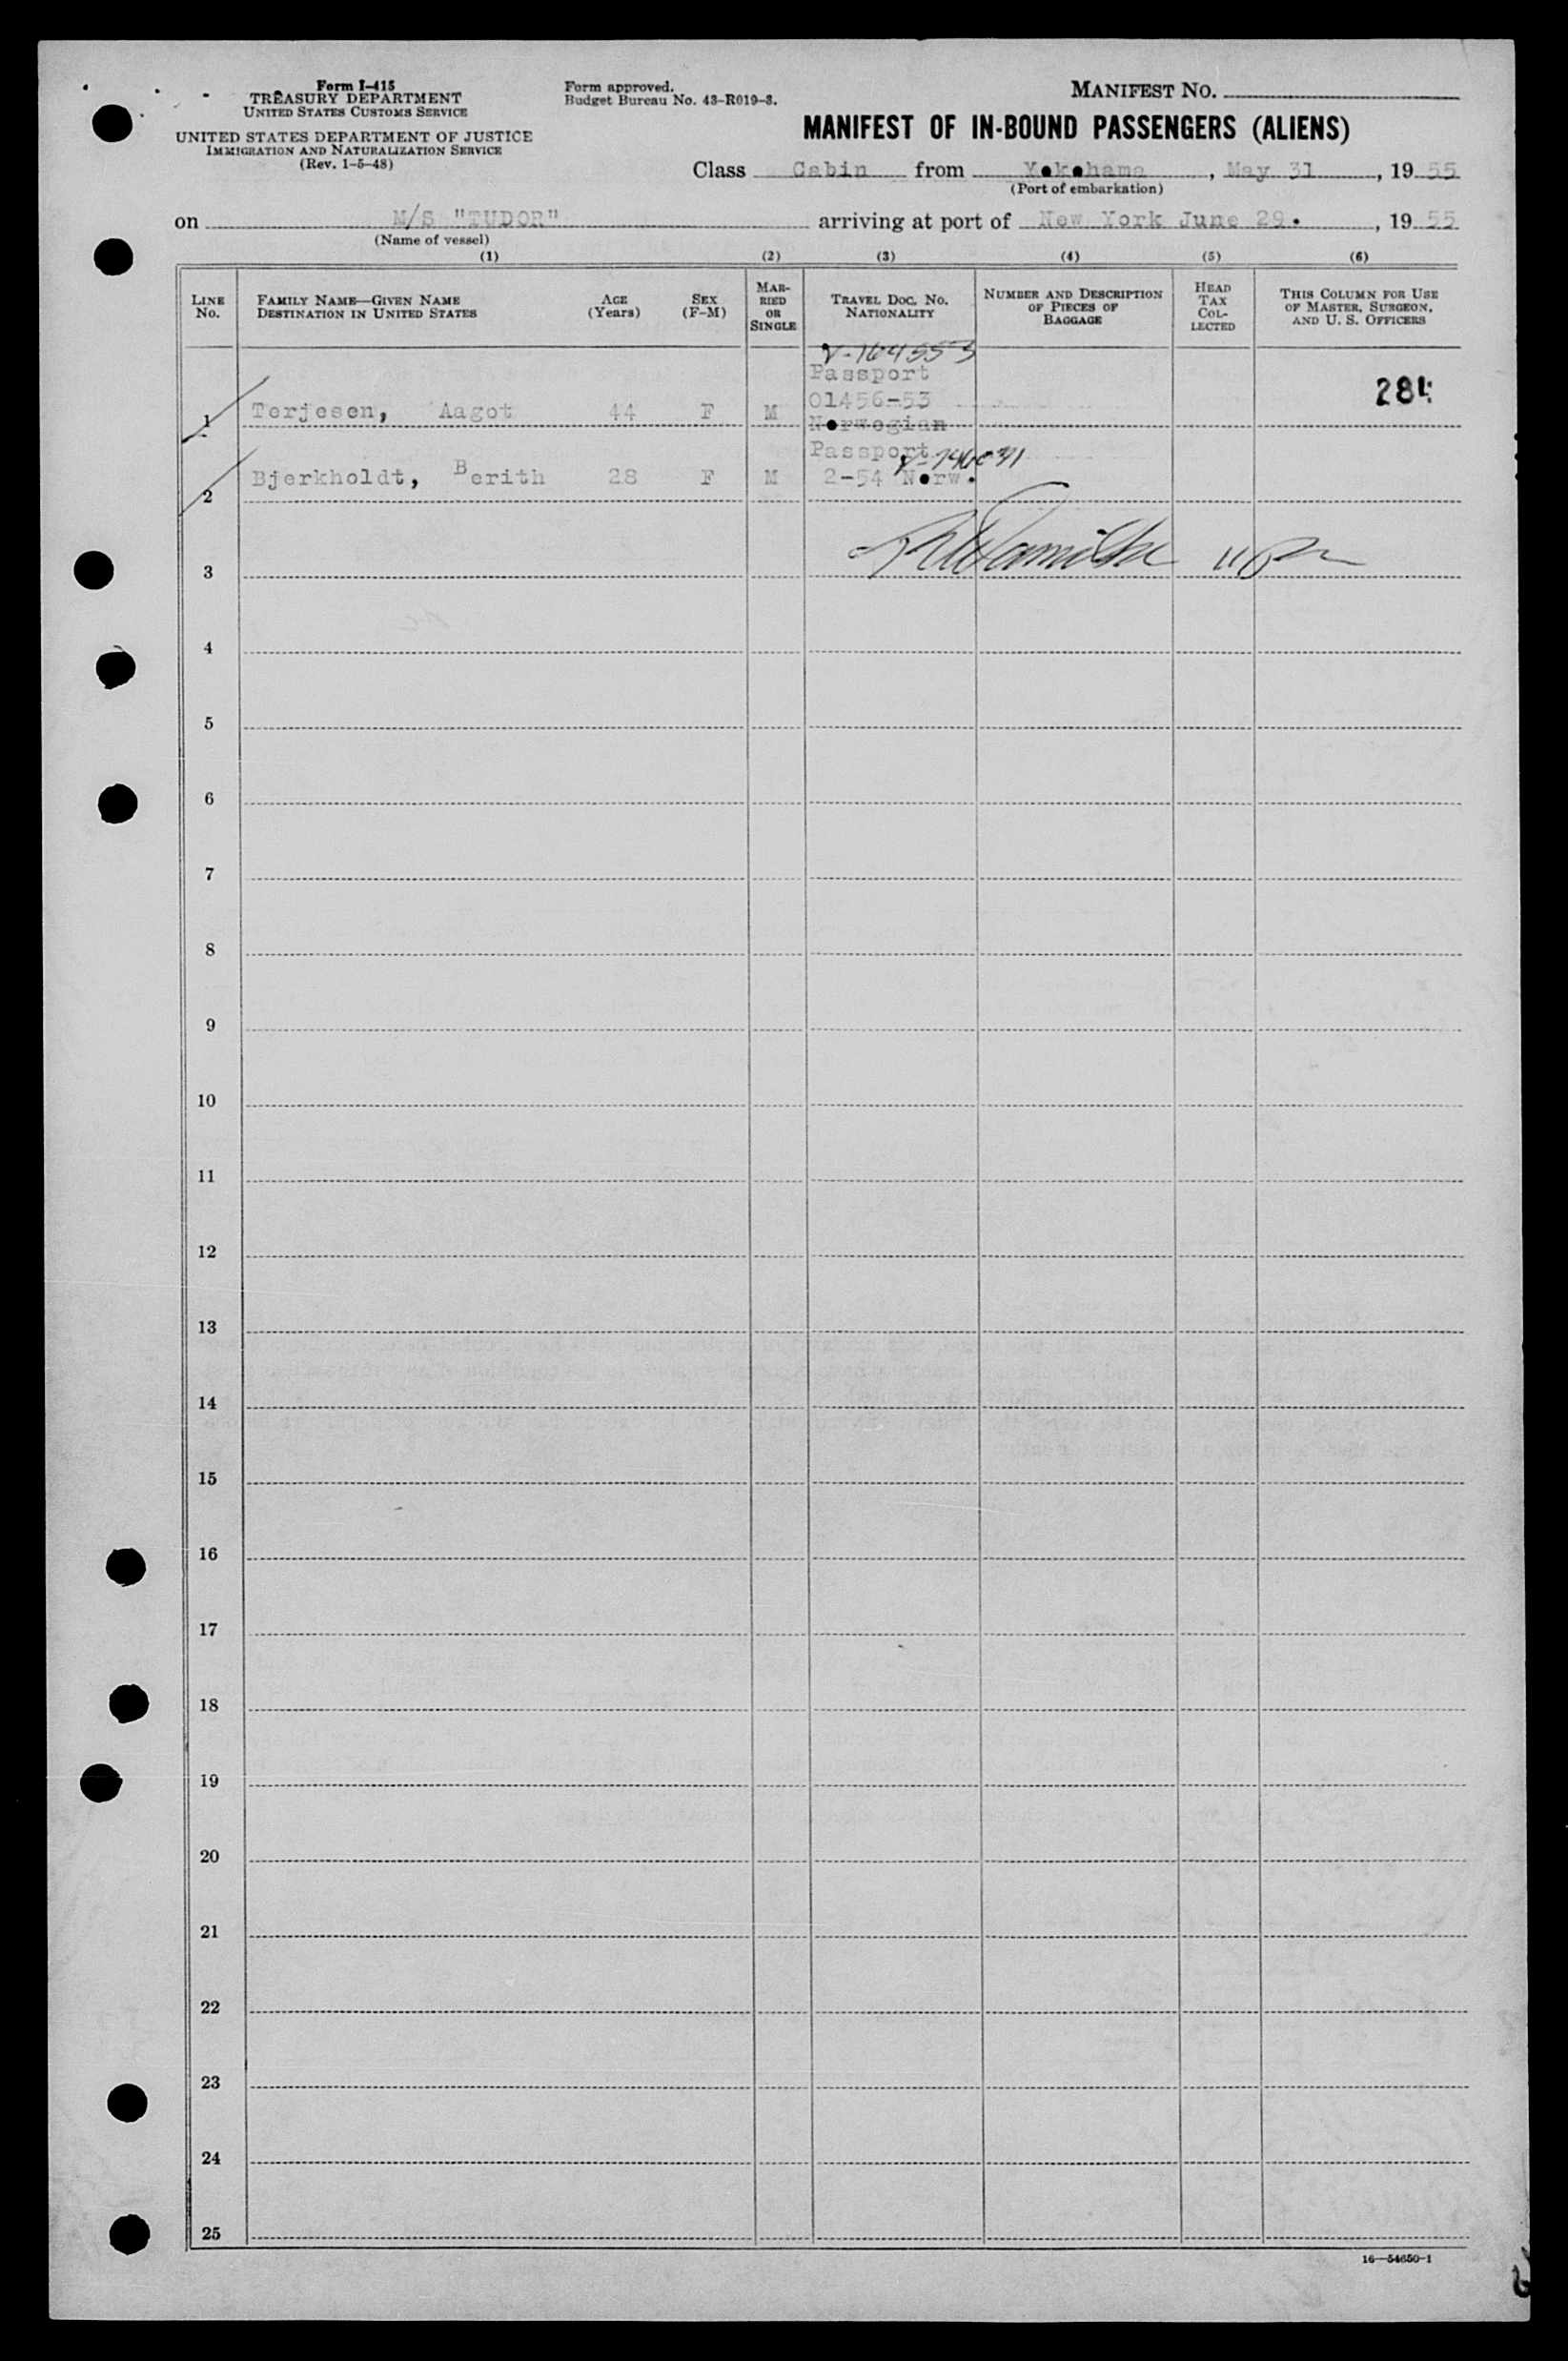 Form I-415
TREASURY DEPARTMENT
UNITED STATES CUSTOMS SERVICE
UNITED STATES DEPARTMENT OF JUSTICE
IMMIGRATION AND NATURALIZATION SERVICE
(Rev. 1-5-48)
Form approved.
Budget Bureau No. 43-R019-3.
MANIFEST NO.
MANIFEST OF IN-BOUND PASSENGERS (ALIENS)
Class Cabin from Yokohama, May 31, 19 55
(Port of embarkation)
on M/S "TUDOR" arriving at port of New York June 29., 19 55
(Name of vessel)
(1) (2) (3) (4) (5) (6)
LINE NO.
FAMILY NAME—GIVEN NAME
DESTINATION IN UNITED STATES
AGE
(Years)
SEX
(F-M)
MAR-
RIED
OR
SINGLE
TRAVEL DOC. NO.
NATIONALITY
NUMBER AND DESCRIPTION
OF PIECES OF
BAGGAGE
HEAD
TAX
COL-
LECTED
THIS COLUMN FOR USE
OF MASTER, SURGEON,
AND U. S. OFFICERS
V-164553
Passport
01456-53
1 Terjesen, Aagot 44 F M
Norwegian
284
Passport
2 Bjerkholdt, Berith 28 F M 2-54 Norw.
3
4
5
6
7
8
9
10
11
12
13
14
15
16
17
18
19
20
21
22
23
24
25
16—54650-1